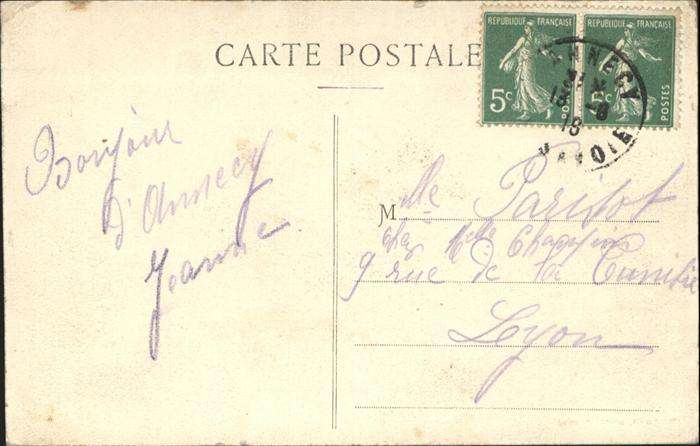 CARTE POSTALE
RÉPUBLIQUE FRANÇAISE
5c
POSTES
RÉPUBLIQUE FRANÇAISE
5c
POSTES
ANNECY
18
SAVOIE
Bonjour
d'Annecy
Jeanne
Mlle Parisot
chez Melle
9 rue de la
Lyon